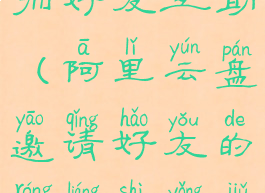 好友互助
ā lǐ yún pán
（阿里云盘
yāo qǐng hǎo yǒu de
邀请好友的
róng liáng shì yǒng jiǔ